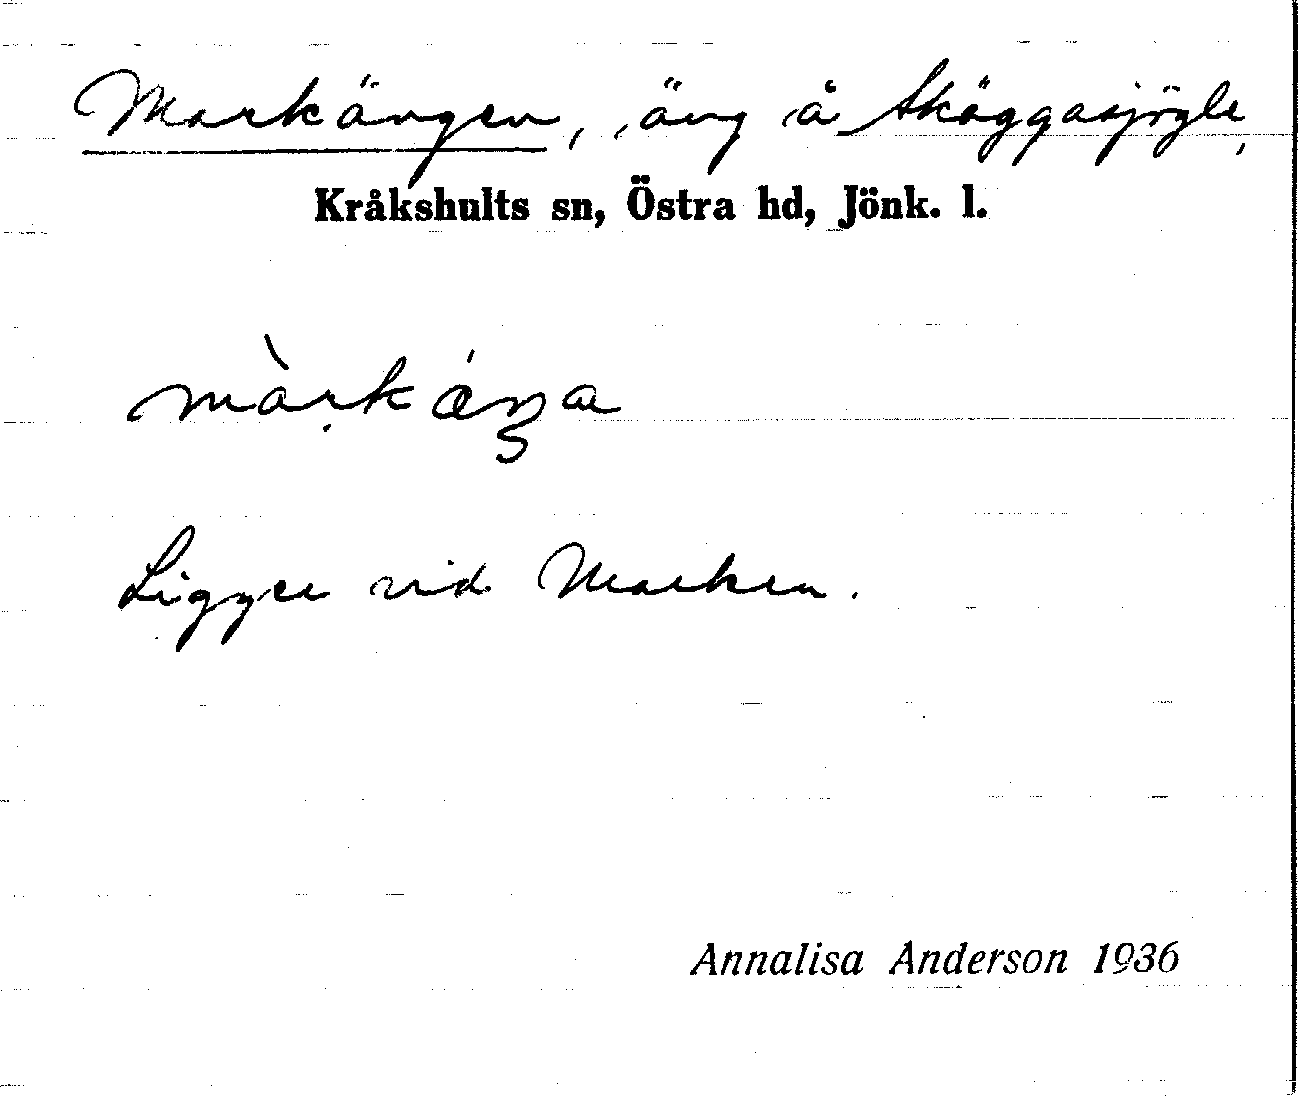 Markängen, äng å Skäggasjögle,
Kråkshults sn, Östra hd, Jönk. l.
Ligger vid Marken.
Annalisa Anderson 1936